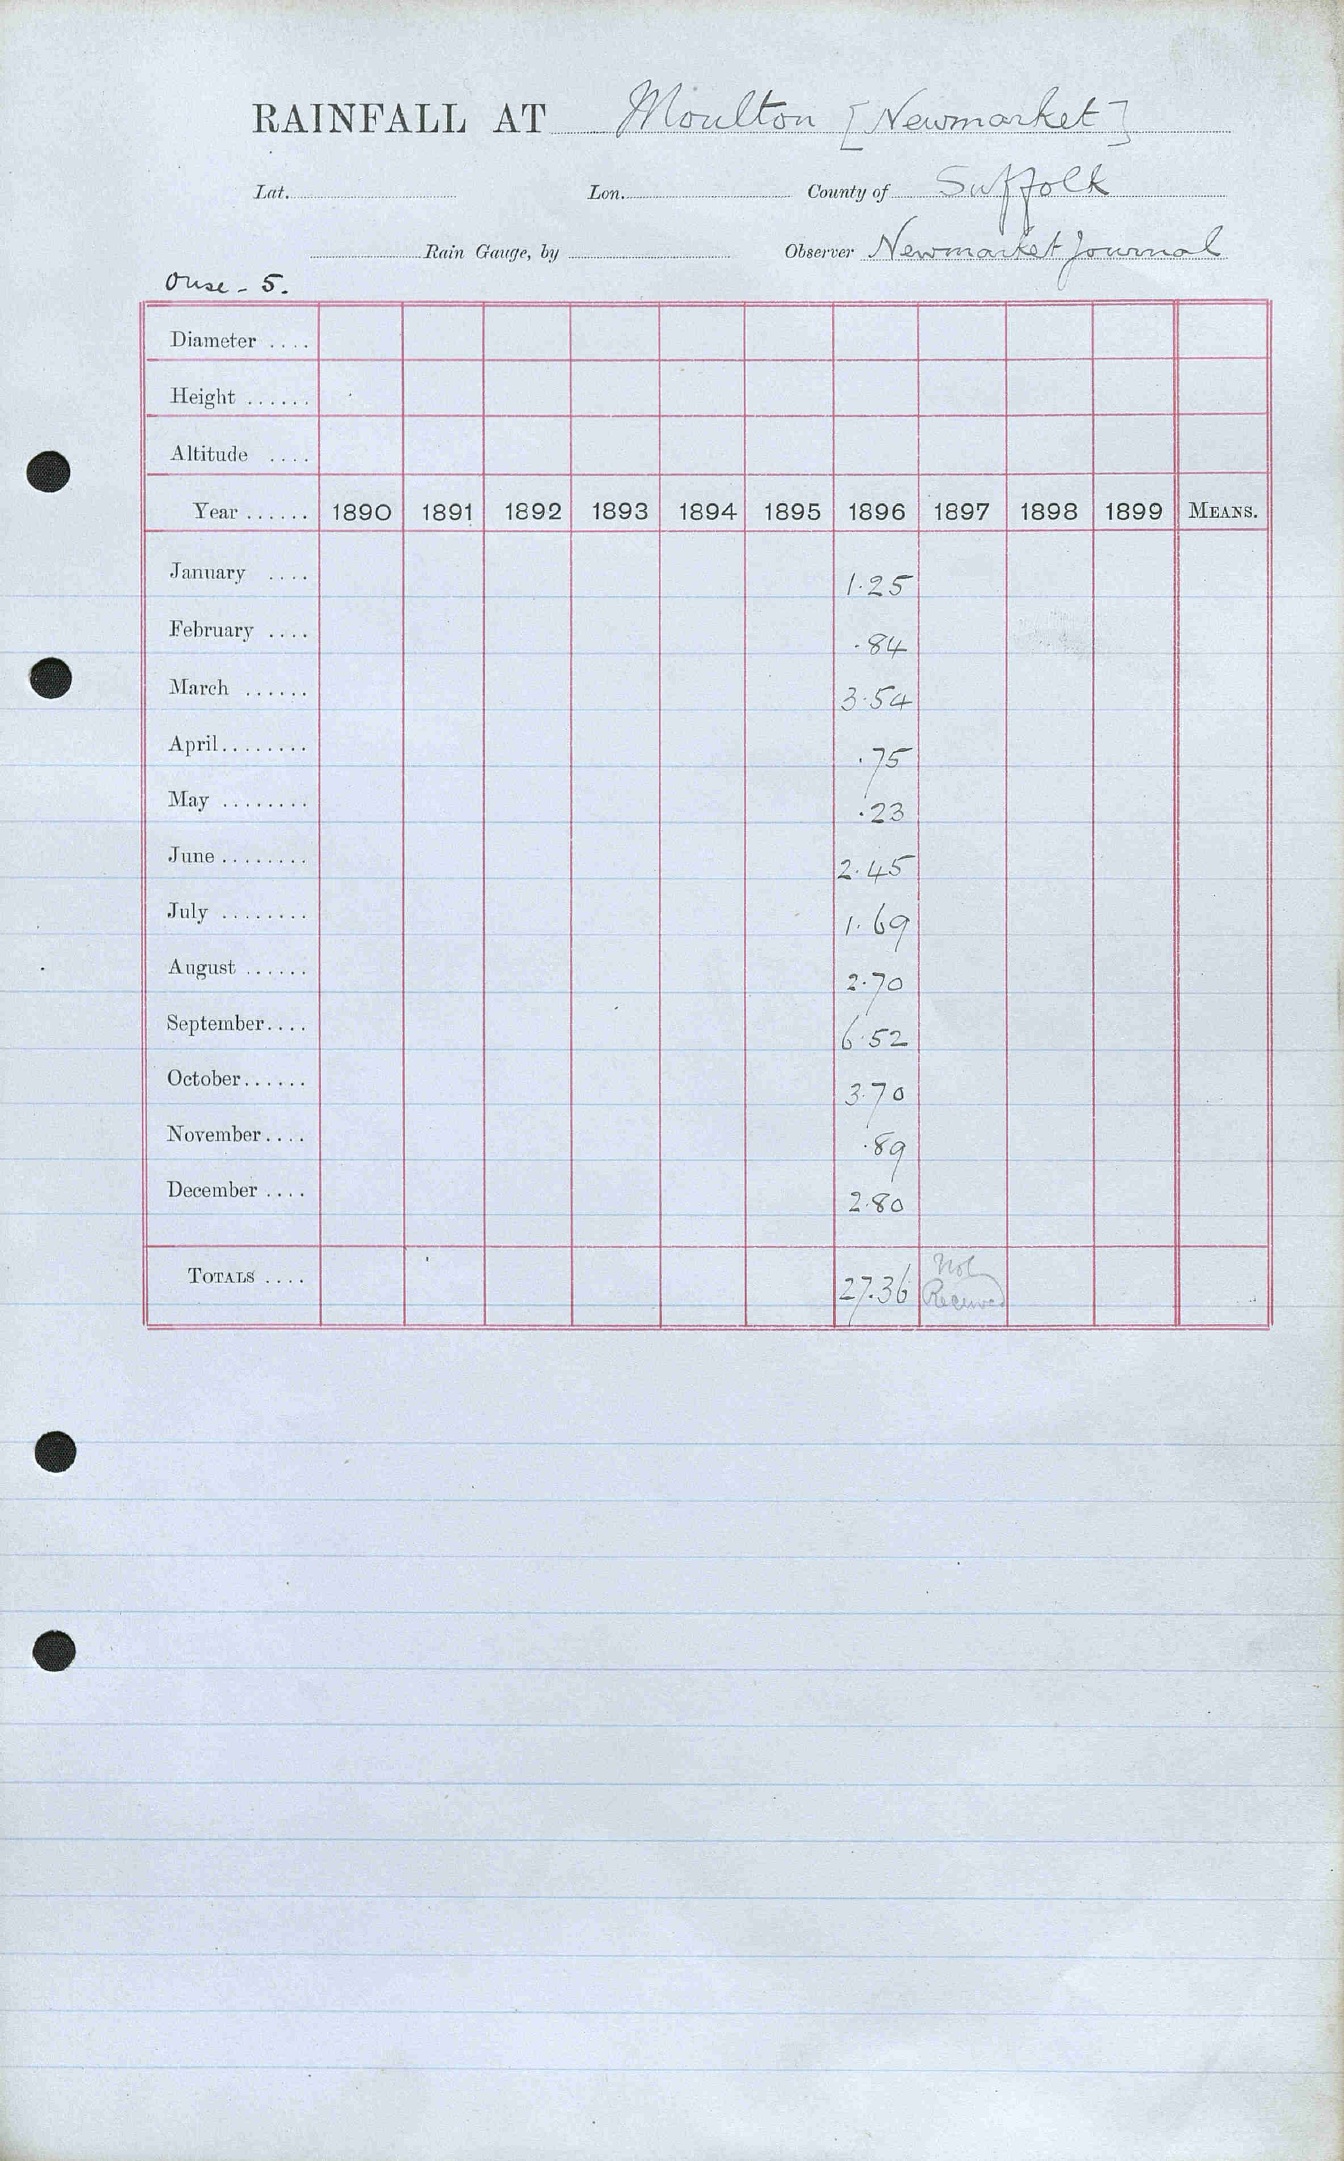 RAINFALL AT Moulton [Newmarket]
Lat. Lon. County of Suffolk
Rain Gauge, by Observer Newmarket Journal
Ouse - 5.
Diameter ....
Height ......
Altitude ....
Year ...... 1890 1891 1892 1893 1894 1895 1896 1897 1898 1899 MEANS.
January .... 1.25
February .... .84
March ...... 3.54
April ........ .75
May ........ .23
June ........ 2.45
July ........ 1.69
August ...... 2.70
September.... 6.52
October...... 3.70
November.... .89
December .... 2.80
TOTALS .... 27.36 Not
Received